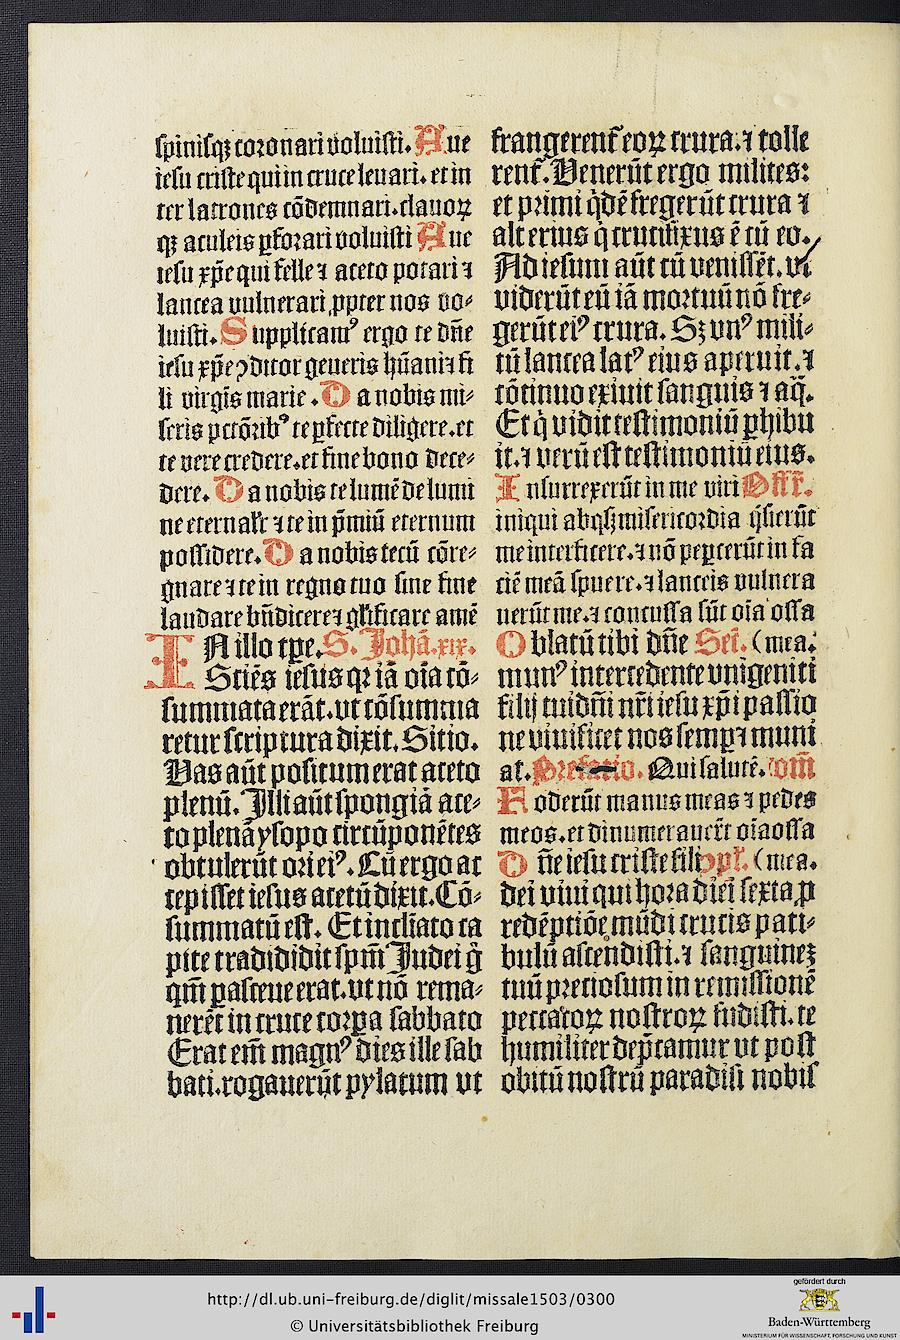 spinisqꝫ coronari voluisti. Aue
iesu criste qui in cruce leuari. et in
ter latrones cōdemnari. clauoꝝ
qꝫ aculeis ꝑforari voluisti Aue
iesu xp̄e qui felle ⁊ aceto potari ⁊
lancea vulnerari ꝓpter nos vo⸗
luisti. Supplicamꝰ ergo te dn̄e
iesu xp̄e ↄditor generis hūani ⁊ fi
li virgīs marie. Da nobis mi⸗
seris pctōribꝰ te ꝑfecte diligere. et
te vere credere. et fine bono dece⸗
dere. Da nobis te lumē de lumi
ne eternalr̄ ⁊ te in p̄miū eternum
possidere. Da nobis tecū cōre⸗
gnare ⁊ te in regno tuo sine fine
laudare bn̄dicere ⁊ glificare amē
IN illo tꝑe. S. Johā. xix.
Sciēs iesus qꝛ iā oīa cō⸗
summata erāt. vt cōsumma
retur scriptura dixit. Sitio.
Vas aūt positum erat aceto
plenū. Illi aūt spongiā ace⸗
to plenā ysopo circūponētes
obtulerūt ori eiꝰ. Cū ergo ac
cepisset iesus acetū dixit. Cō⸗
summatū est. Et inclīato ca
pite tradidit spm̄ Judei g̊
qm̄ ꝑasceue erat. vt nō rema⸗
nerēt in cruce corꝑa sabbato
Erat em̄ magnꝰ dies ille sab
bati. rogauerūt pylatum vt
frangerent̄ eoꝝ crura. ⁊ tolle
rent̄. Venerūt ergo milites:
et primi q̇dē fregerūt crura ⁊
alterius q̇ crucifixus ē cū eo.
Ad iesum aūt cū venissēt. vt
viderūt eū iā mortuū nō fre⸗
gerūt eiꝰ crura. Sꝫ vnꝰ mili⸗
tū lancea latꝰ eius aperuit. ⁊
cōtinuo exiuit sanguis ⁊ aq̄.
Et q̇ vidit testimoniū ꝑhibu
it. ⁊ verū est testimoniū eius.
Insurrexerūt in me viri Offr̄.
iniqui absqꝫ misericordia q̇sierūt
me interficere. ⁊ nō peꝑcerūt in fa
ciē meā spuere. ⁊ lanceis vulnera
uerūt me. ⁊ concussa sūt oīa ossa
Oblatū tibi dn̄e Scī. (mea.
munꝰ intercedente vnigeniti
filij tui dn̄i nr̄i iesu xp̄i passio
ne viuificet nos semꝑ ⁊ muni
at. Prefatio. Qui salutē. Com̄
Foderūt manus meas ⁊ pedes
meos. et dinumerauer̄t oīa ossa
Dn̄e iesu criste fili ↄpl̄. (mea.
dei viui qui hora diēi sexta ꝓ
redēptiōe mūdi crucis pati⸗
bulū ascendisti. ⁊ sanguinez
tuū preciosum in remissionē
peccatoꝝ nostroꝝ fudisti. te
humiliter dep̄camur vt post
obitū nostrū paradisi nobis
http://dl.ub.uni-freiburg.de/diglit/missale1503/0300
© Universitätsbibliothek Freiburg
gefördert durch
Baden-Württemberg
MINISTERIUM FÜR WISSENSCHAFT, FORSCHUNG UND KUNST